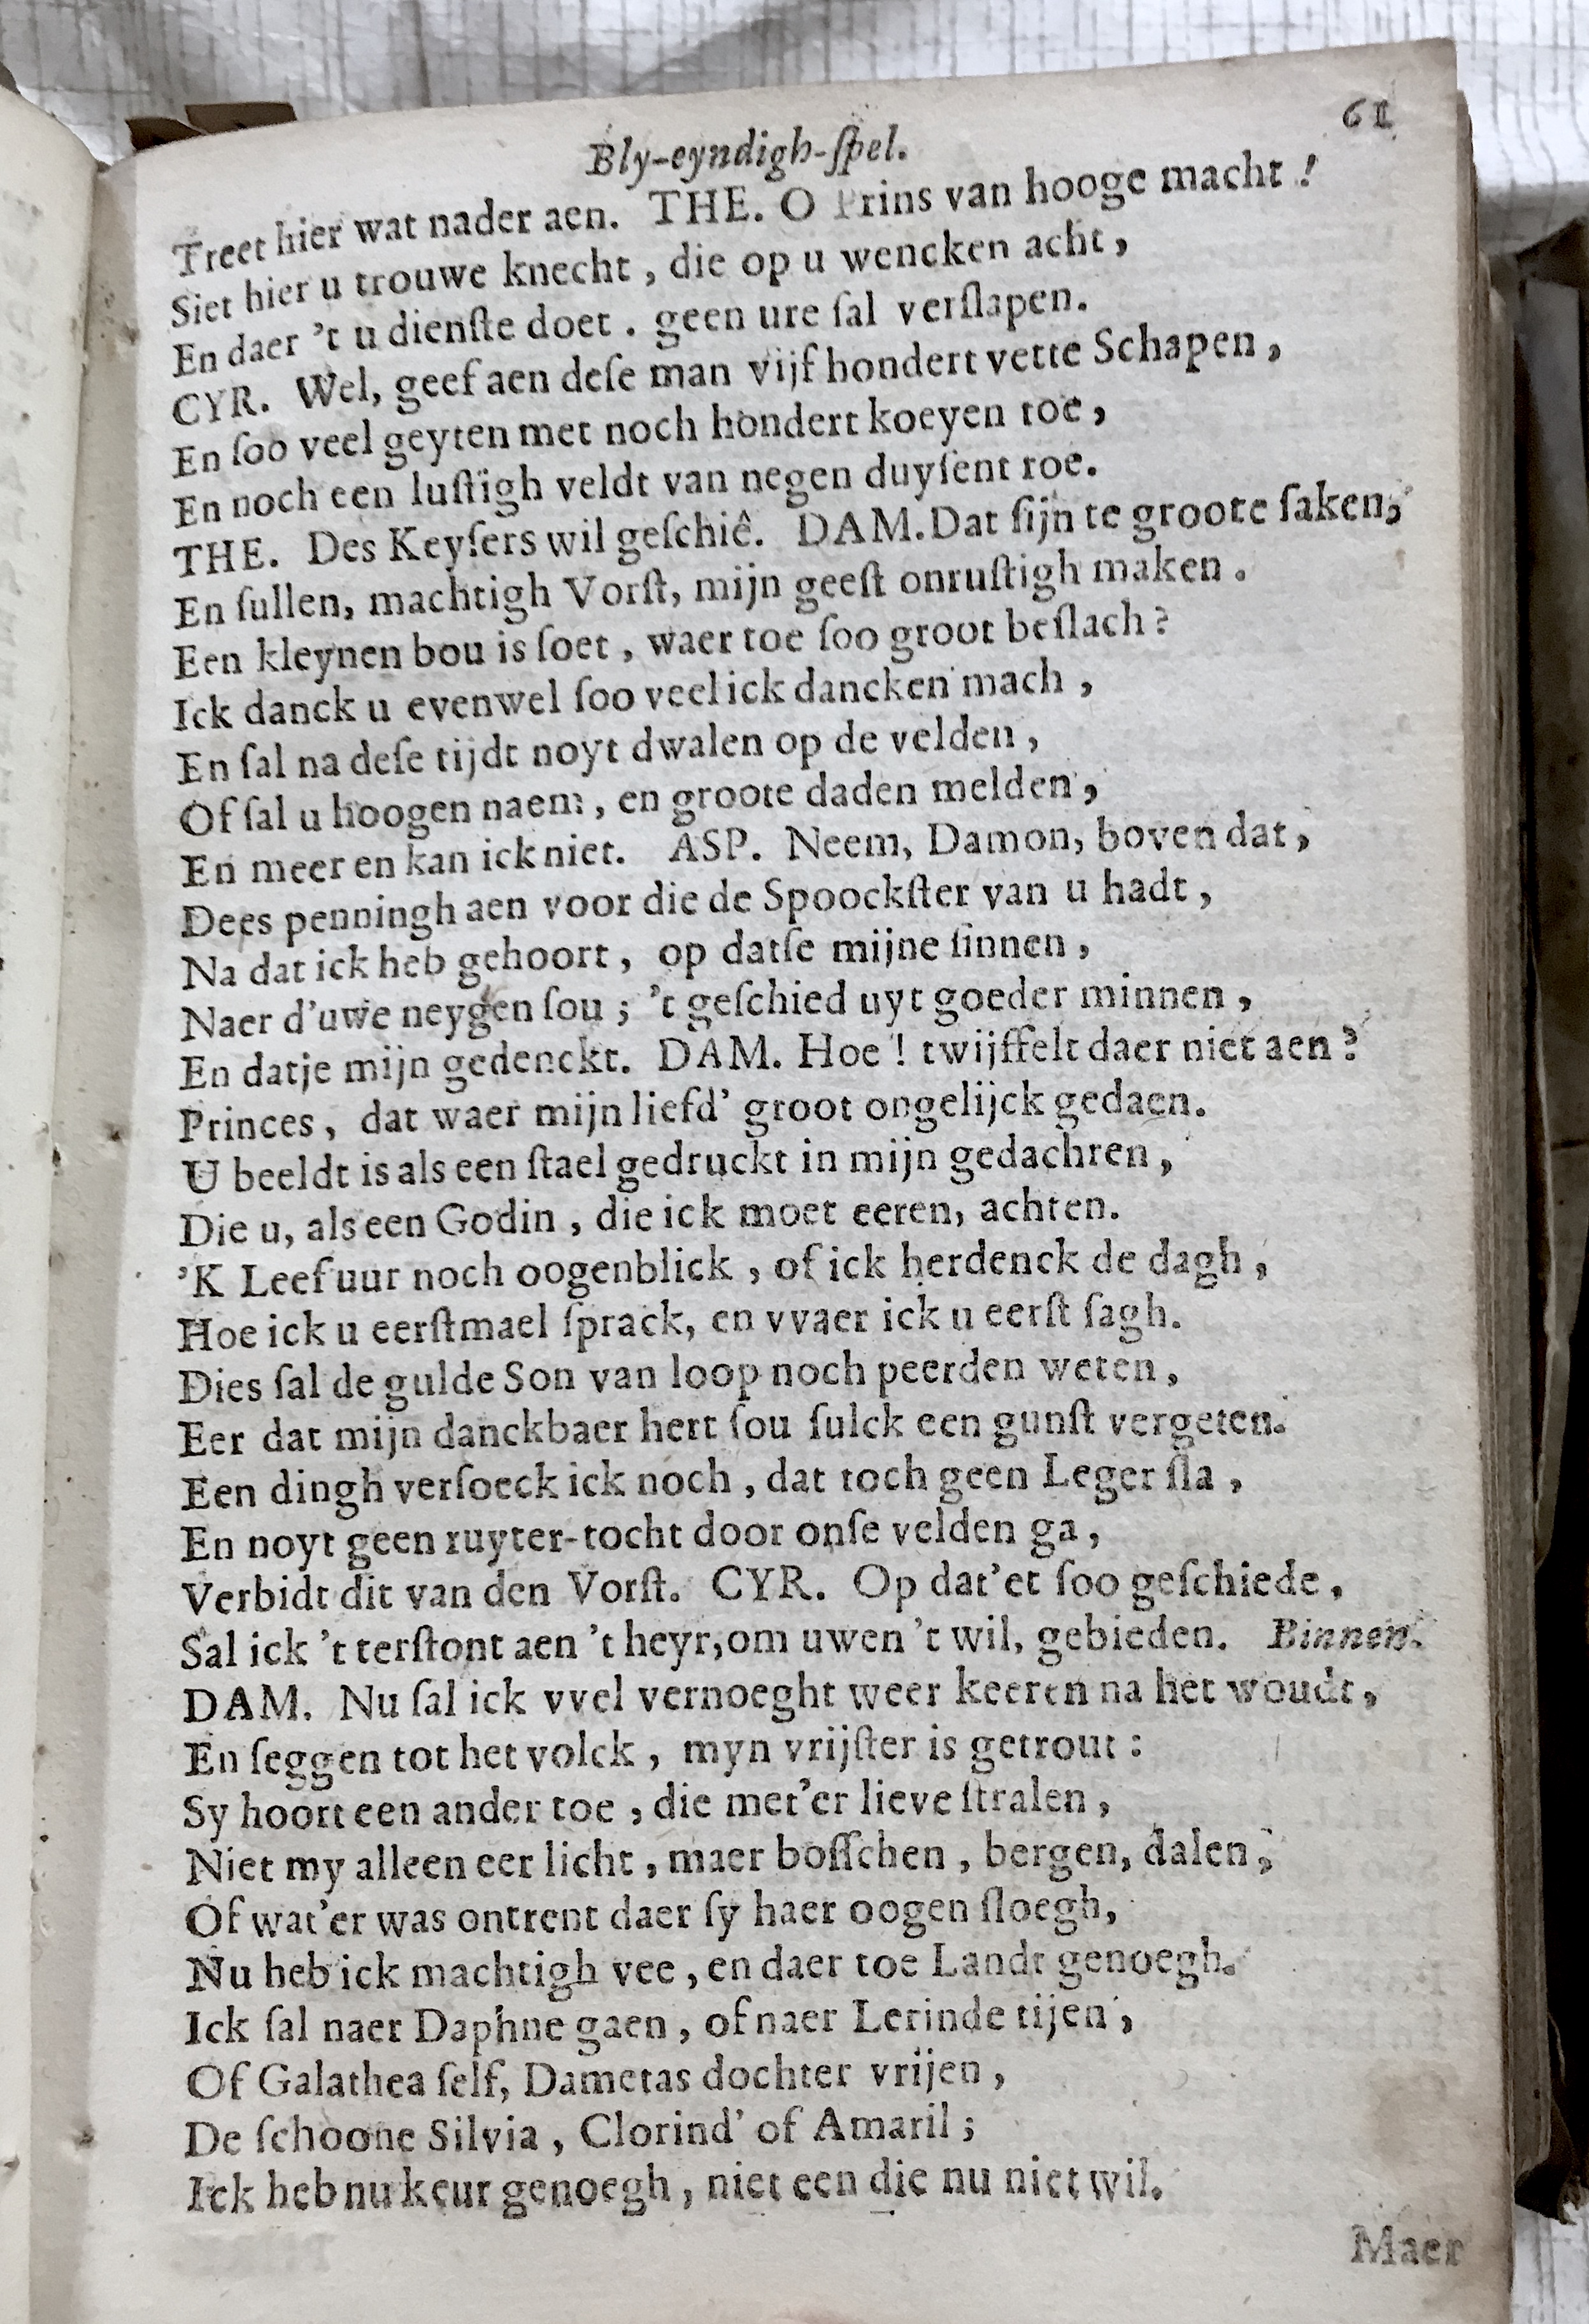 61
Bly-eyndigh-ſpel.
Treet hier wat nader aen. THE. O Prins van hooge macht !
Siet hier u trouwe knecht , die op u wencken acht ,
En daer 't u dienſte doet . geen ure ſal verſlapen.
CYR. Wel, geef aen deſe man vijf hondert vette Schapen ,
En ſoo veel geyten met noch hondert koeyen toe ,
En noch een luſtigh veldt van negen duyſent roe.
THE. Des Keyſers wil geſchiê. DAM. Dat ſijn te groote ſaken,
En ſullen, machtigh Vorſt, mijn geeſt onruſtigh maken .
Een kleynen bou is ſoet , waer toe ſoo groot beſlach ?
Ick danck u evenwel ſoo veel ick dancken mach ,
En ſal na deſe tijdt noyt dwalen op de velden ,
Of ſal u hoogen naem , en groote daden melden ,
En meer en kan ick niet. ASP. Neem, Damon, boven dat ,
Dees penningh aen voor die de Spoockſter van u hadt ,
Na dat ick heb gehoort , op datſe mijne ſinnen ,
Naer d'uwe neygen ſou ; 't geſchied uyt goeder minnen ,
En datje mijn gedenckt. DAM. Hoe ! twijffelt daer niet aen ?
Princes , dat waer mijn liefd' groot ongelijck gedaen.
U beeldt is als een ſtael gedruckt in mijn gedachten ,
Die u, als een Godin , die ick moet eeren, achten.
'K Leef uur noch oogenblick , of ick herdenck de dagh ,
Hoe ick u eerſtmael ſprack, en vvaer ick u eerſt ſagh.
Dies ſal de gulde Son van loop noch peerden weten ,
Eer dat mijn danckbaer hert ſou ſulck een gunſt vergeten.
Een dingh verſoeck ick noch , dat toch geen Leger ſla ,
En noyt geen ruyter-tocht door onſe velden ga ,
Verbidt dit van den Vorſt. CYR. Op dat'et ſoo geſchiede ,
Sal ick 't terſtont aen 't heyr, om uwen 't wil, gebieden. Binnen.
DAM. Nu ſal ick vvel vernoeght weer keeren na het woudt ,
En ſeggen tot het volck , myn vrijſter is getrout :
Sy hoort een ander toe , die met'er lieve ſtralen ,
Niet my alleen eer licht , maer boſſchen , bergen, dalen ,
Of wat'er was ontrent daer ſy haer oogen ſloegh,
Nu heb ick machtigh vee , en daer toe Landt genoegh.
Ick ſal naer Daphne gaen , of naer Lerinde tijen ,
Of Galathea ſelf, Dametas dochter vrijen ,
De ſchoone Silvia , Clorind' of Amaril ;
Ick heb nu keur genoegh , niet een die nu niet wil.
Maer